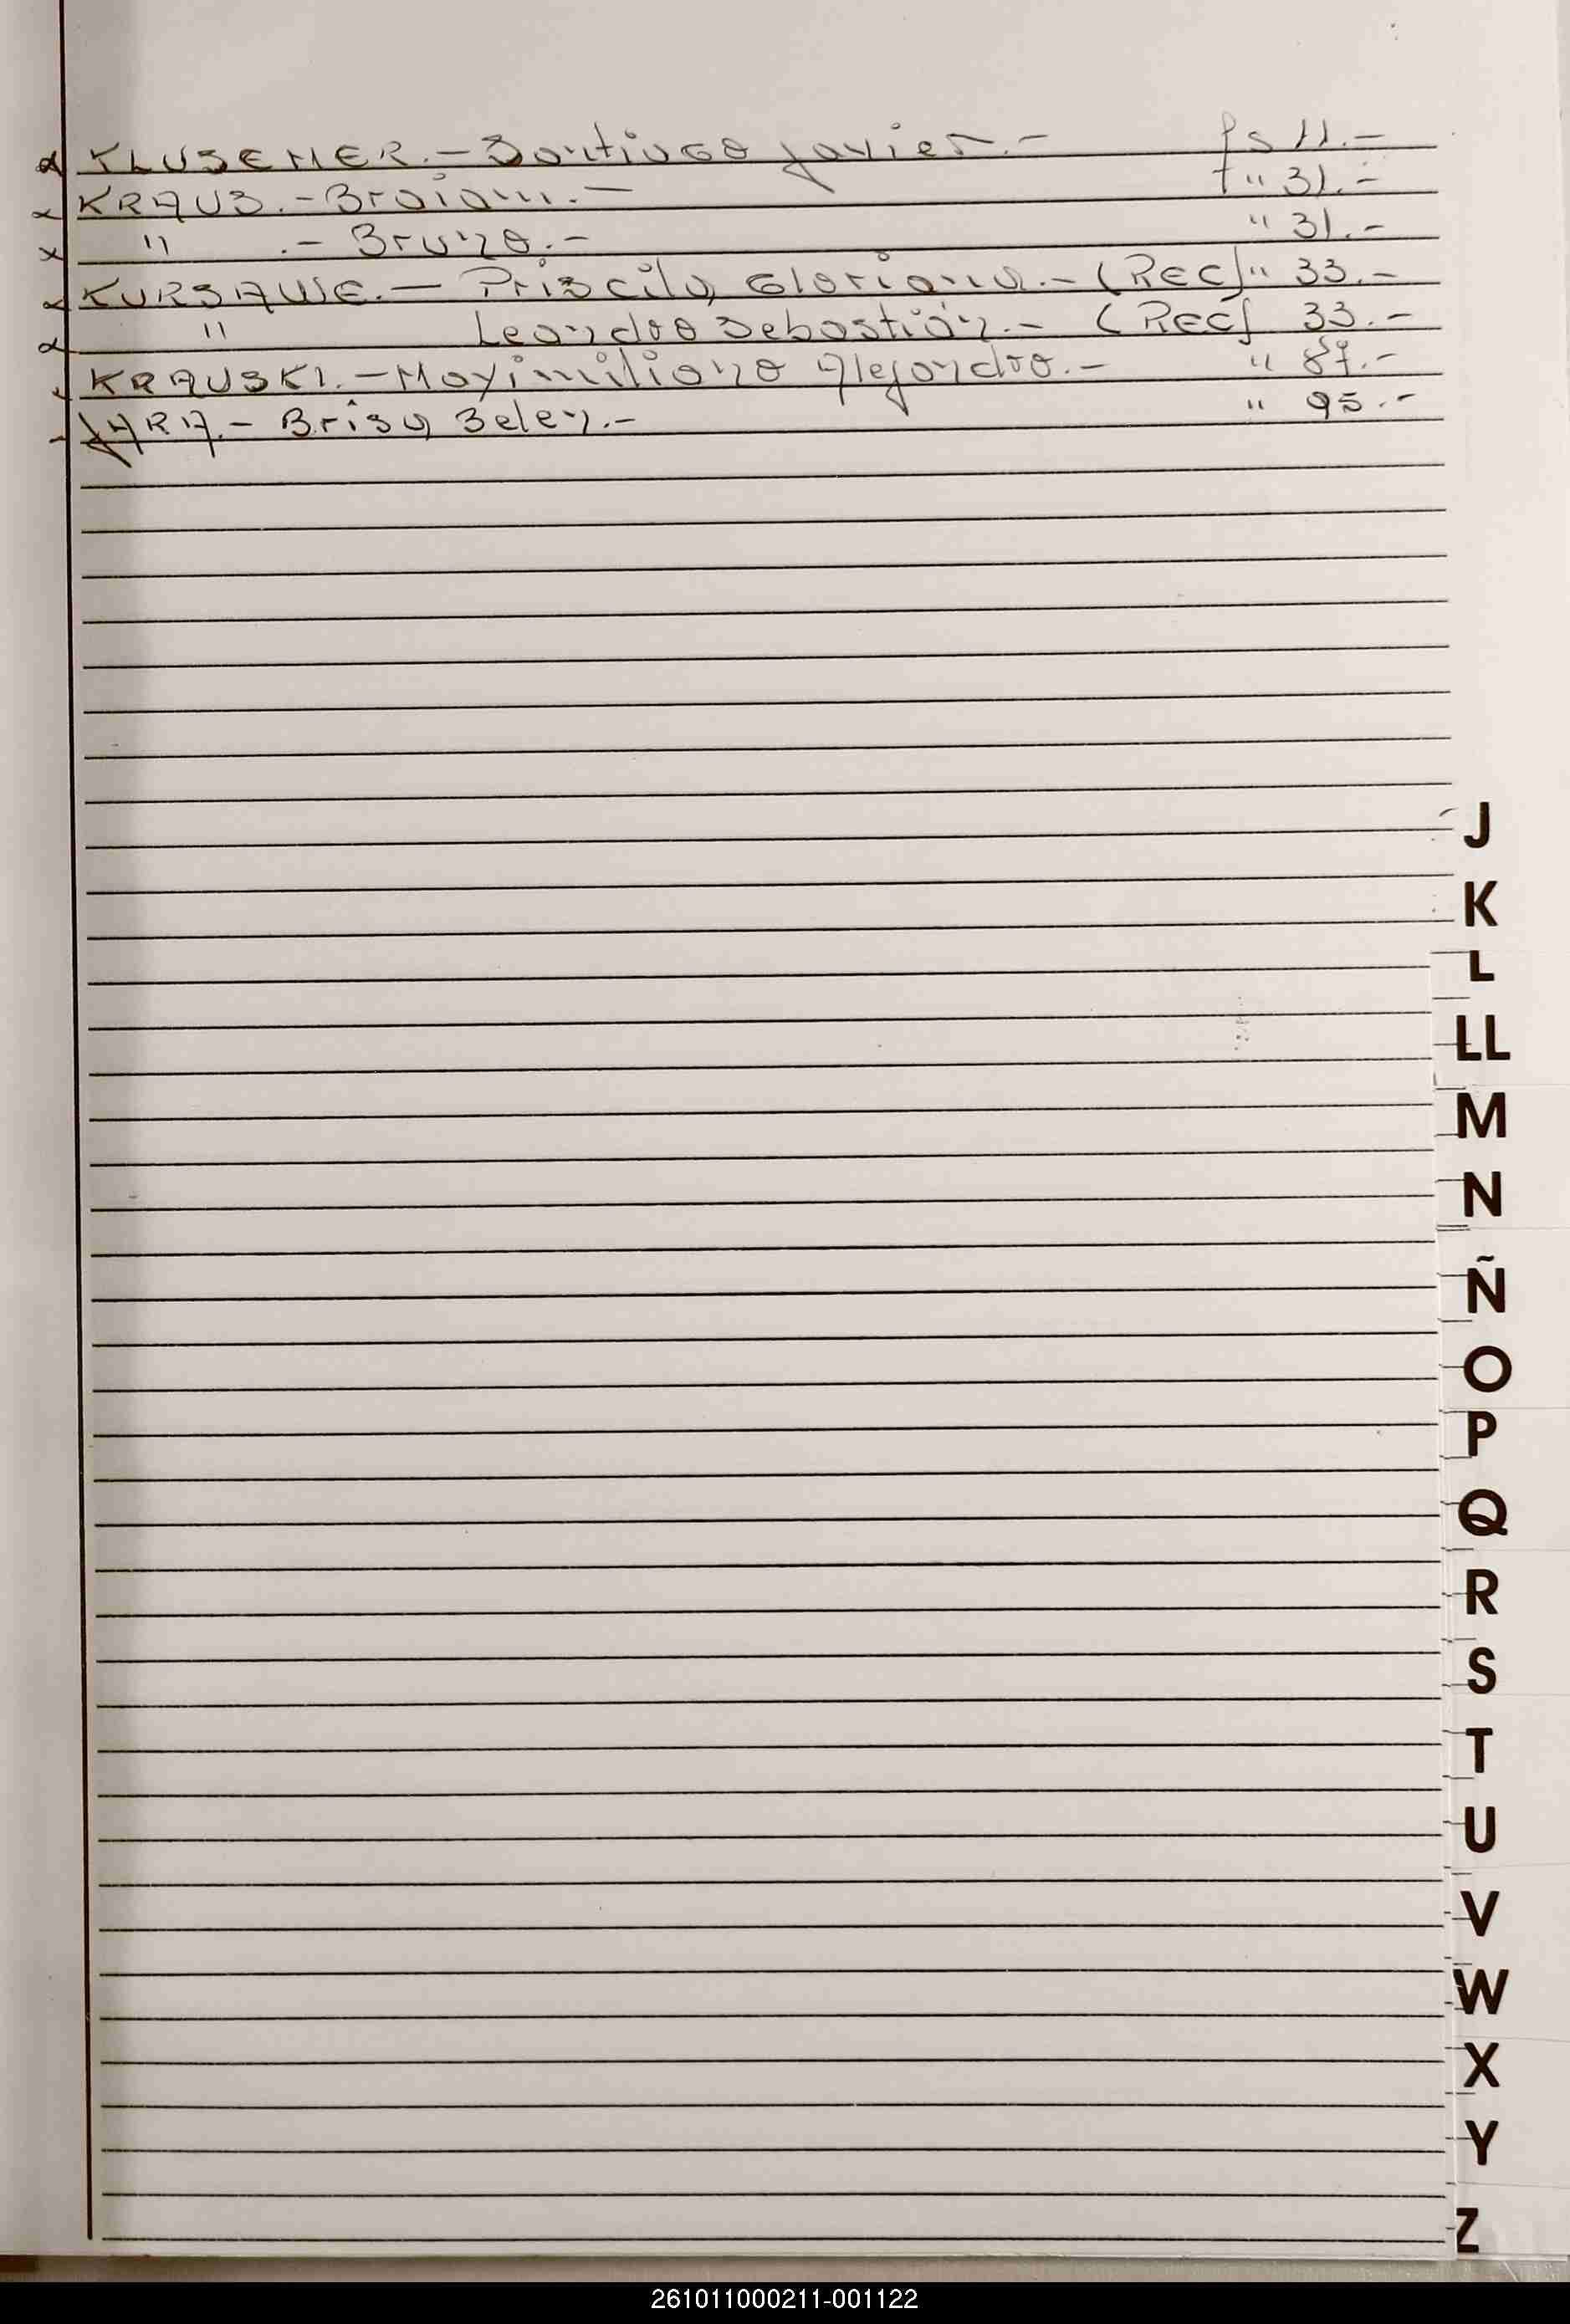 KLUSENER.- Santiago Javier.- fs 11.-
KRAUS.- Braian.- f" 31.-
" .- Bruno.- " 31.-
KURSAWE.- Priscila Gloriana.- (REC) " 33.-
" Leandro Sebastián.- (REC) 33.-
KRAUSKI.- Maximiliano Alejandro.- " 87.-
JARA.- Brisa Belen.- " 95.-
J
K
L
LL
M
N
Ñ
O
P
Q
R
S
T
U
V
W
X
Y
Z
261011000211-001122